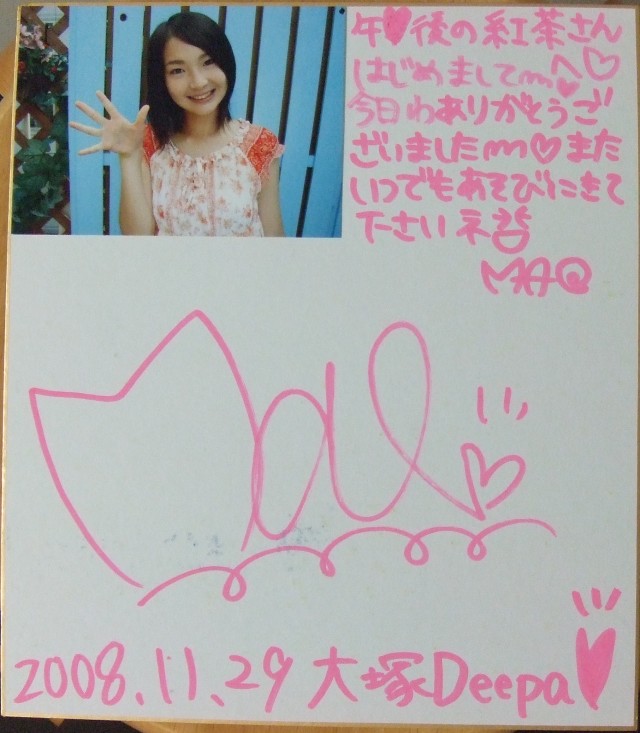 午♥後の紅茶さんへ♡
はじめましてm♡
今日わありがとうご
ざいましたm♡また
いつでもあそびにきて
下さいネ
MAO
Mao
2008.11.29 大塚Deepa♥